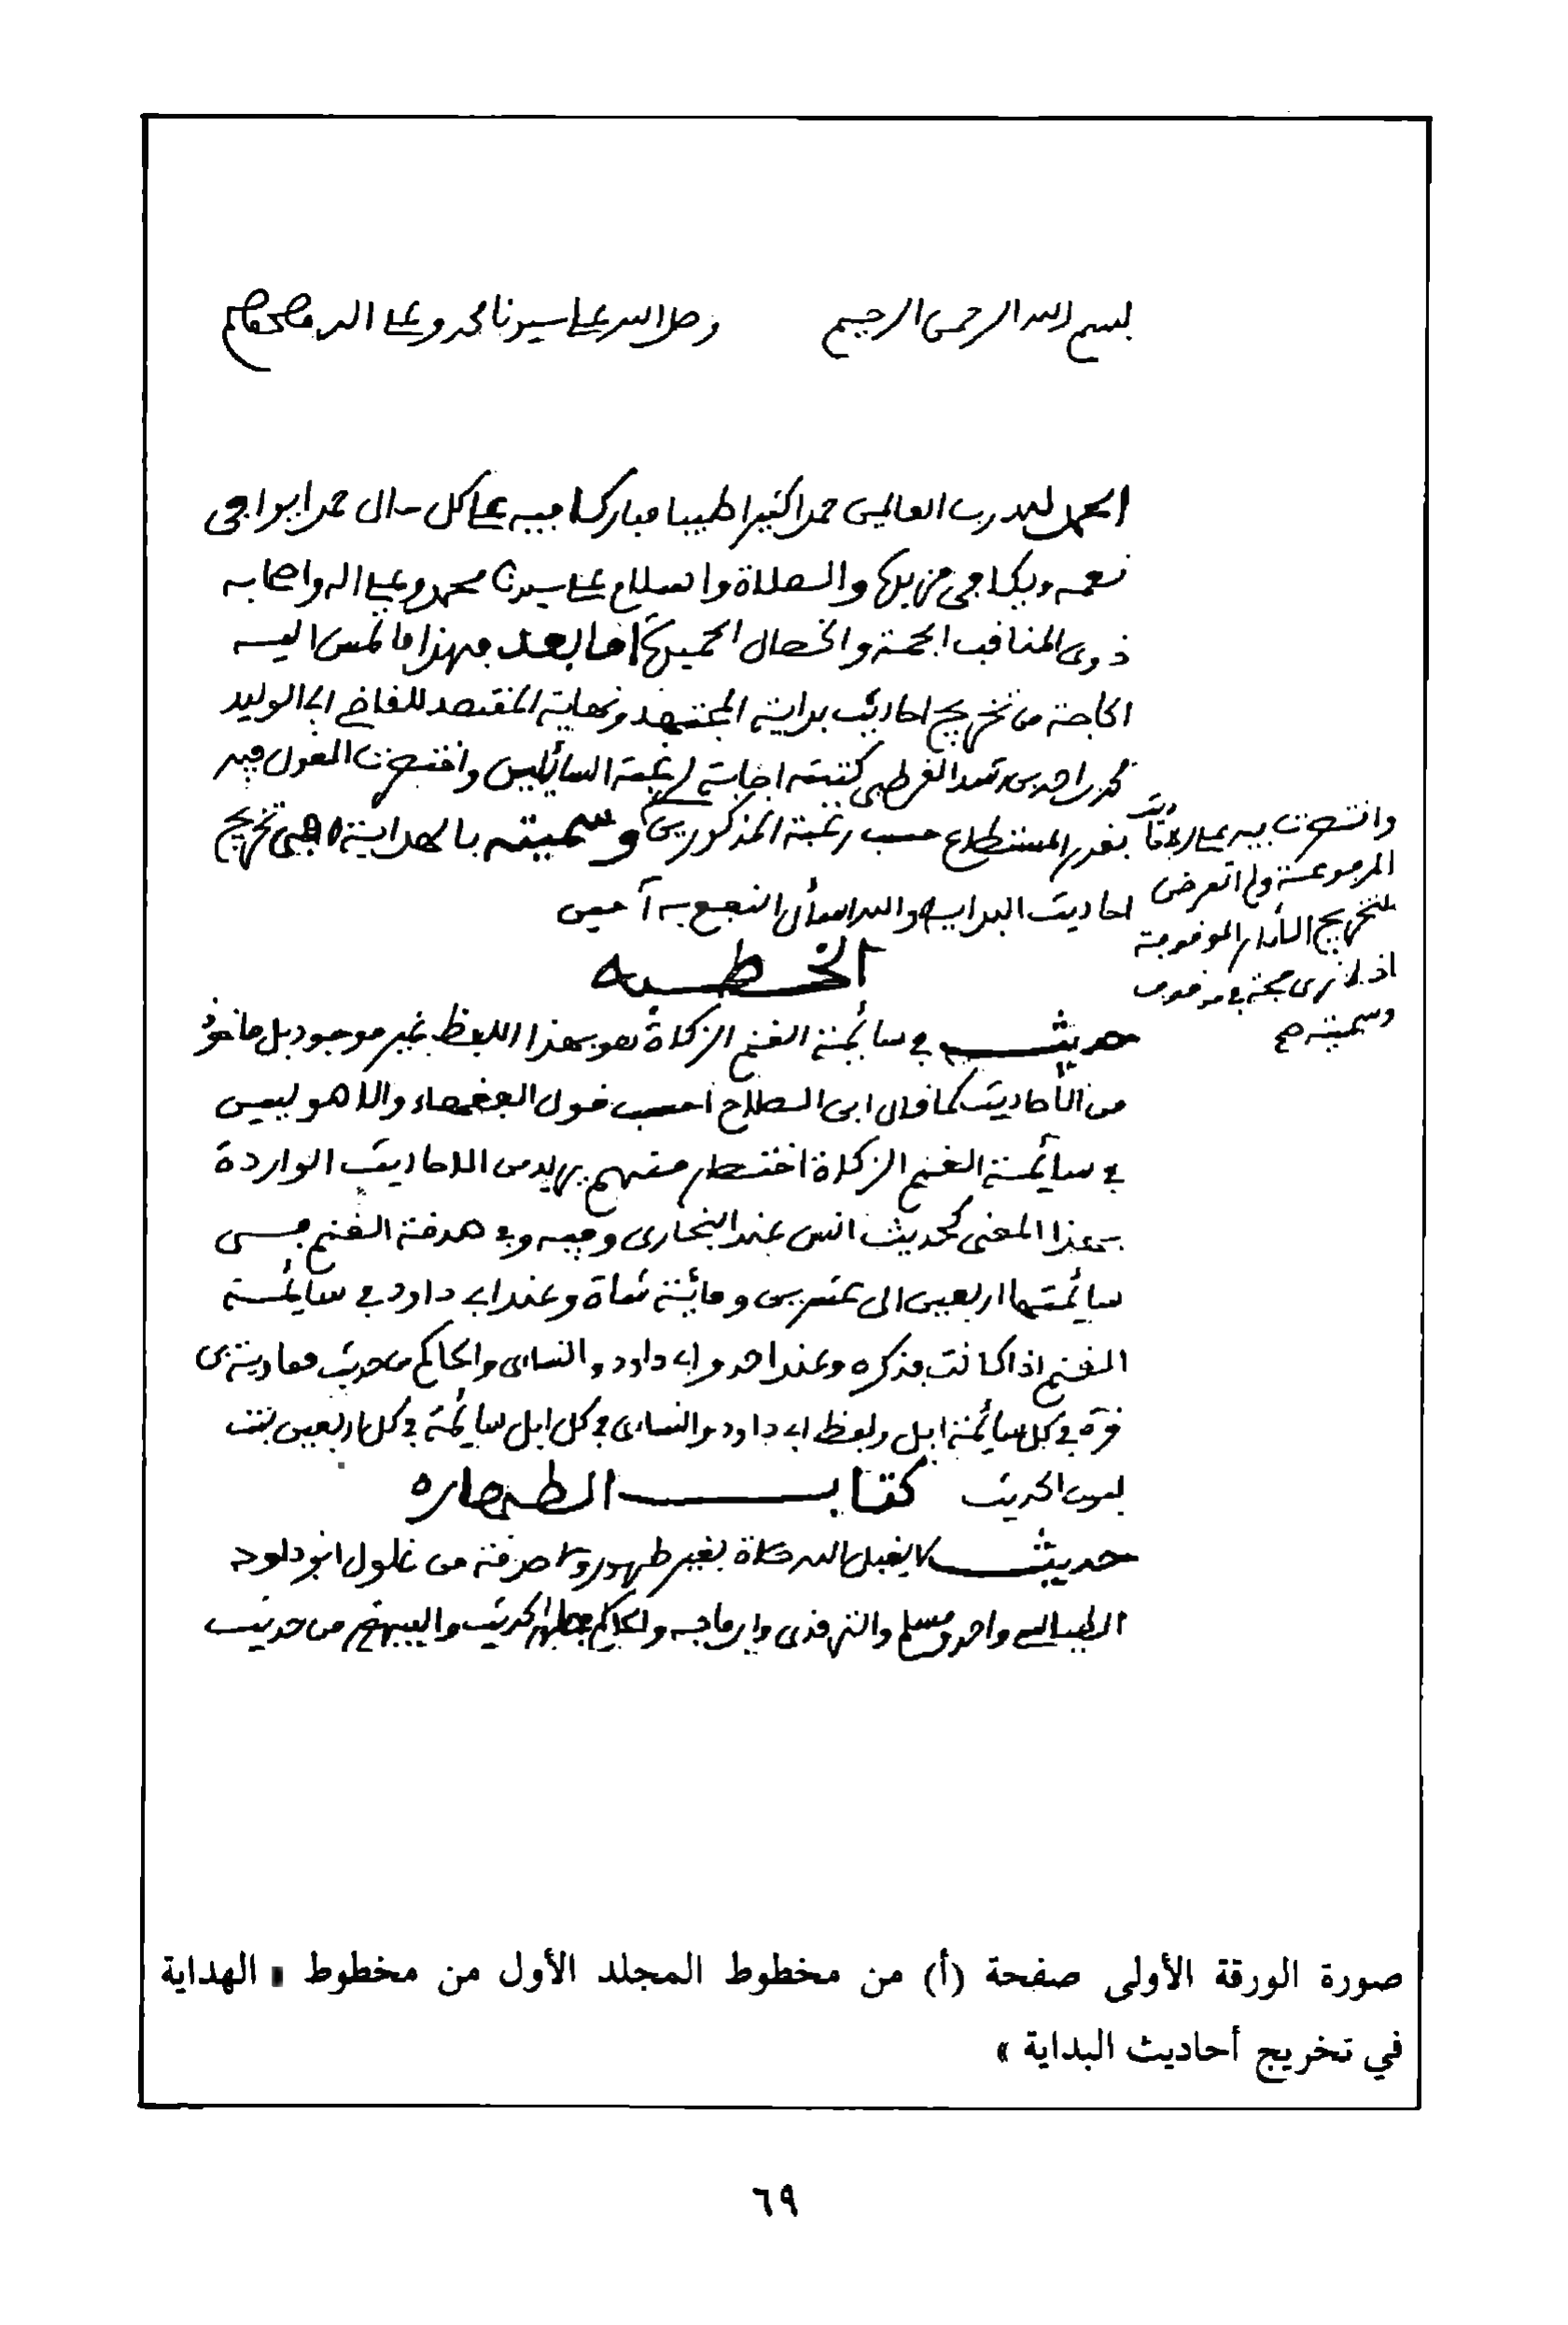 بسم الله الرحمن الرحيم وصلى الله على سيدنا محمد وعلى آله وصحبه
الحمد لله رب العالمين حمدا كثيرا طيبا مباركا فيه على كل حال حمدا يوافي
نعمه ويكافي مزيده والصلاة والسلام على سيدنا محمد وعلى اله واصحابه
ذوي المناقب الجمة والخصال الحميدة اما بعد فهذا ما تمس اليه
الحاجة من تخريج احاديث بداية المجتهد ونهاية المقتصد للقاضي ابي الوليد
محمد بن احمد بن رشد القرطبي كتبته اجابة لرغبة السائلين واختصرت القول فيه
بقدر المستطاع حسب رغبة المذكورين وسميته بالهداية في تخريج
احاديث البداية والله اسأل النفع به آمين
واقتصرت فيه على الاحاديث
المرفوعة ولم اتعرض
لتخريج الآثار الموقوفة
اذ لا نرى حجة في موقوف
وسميته صح
الخطبه
حديث في سائمة الغنم الزكاة هو بهذا اللفظ غير موجود بل مأخوذ
من الأحاديث كما قال ابن الصلاح احسب قول الفقهاء والاهو ليس
في سائمة الغنم الزكاة اختصار منهم يريد من الاحاديث الواردة
بهذا المعنى كحديث انس عند البخاري وفيه وفي صدقة الغنم في
سائمتها اربعين الى عشرين ومائة شاة وعند ابي داود في سايمة
الغنم اذا كانت فذكره وعند احمد وابي داود والنسائي والحاكم من حديث معاوية بن
قرة في كل سائمة ابل ولفظ ابي داود والنسائي في كل ابل سائمة في كل اربعين بنت
لبون الحديث كتاب الطهاره
حديث لا يقبل الله صلاة بغير طهور ولا صدقة من غلول ابو داود
الطيالسي واحمد ومسلم والترمذي وابن ماجه والحاكم الحديث والبيهقي من حديث
صورة الورقة الأولى صفحة (أ) من مخطوط المجلد الأول من مخطوط الهداية
في تخريج أحاديث البداية »
٦٩